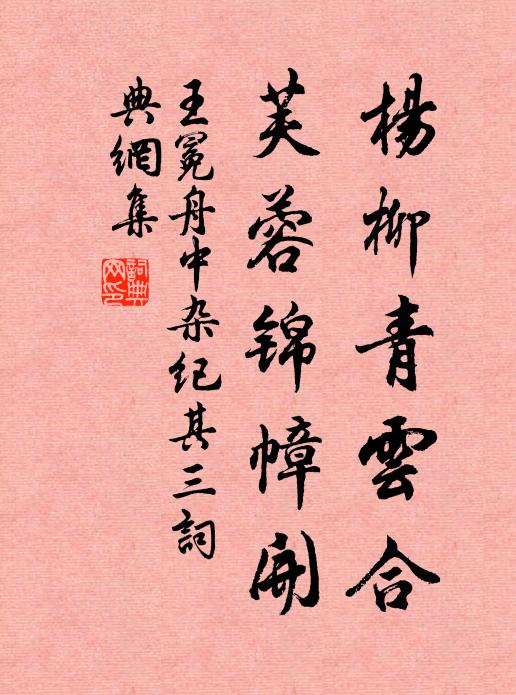 楊柳青雲合
芙蓉錦幛開
王冕舟中杂纪其三詞
典網集
詞典網印